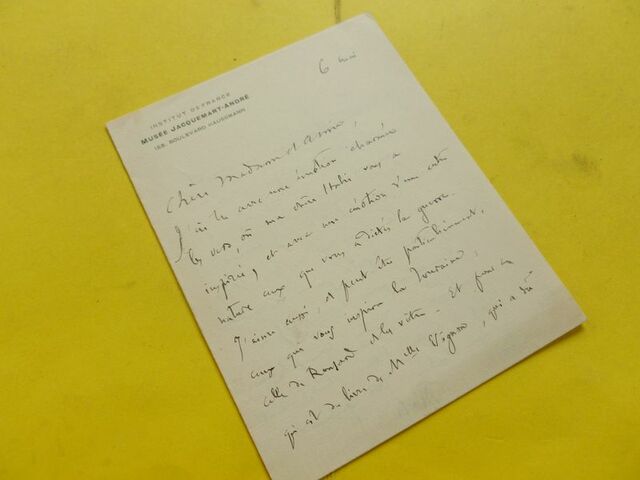 6 mai
INSTITUT DE FRANCE
MUSÉE JACQUEMART-ANDRÉ
158, BOULEVARD HAUSSMANN
Chère Madame et amie,
J'ai lu avec une émotion charmée
les vers, où ma chère Italie vous a
inspirée, et avec une émotion d'une autre
nature ceux que vous a dictés la guerre.
J'aime aussi, et peut être particulièrement,
ceux que vous inspira la Touraine,
celle de Ronsard et la vôtre. Et pour ce
qui est du livre de Melle, qui a dû